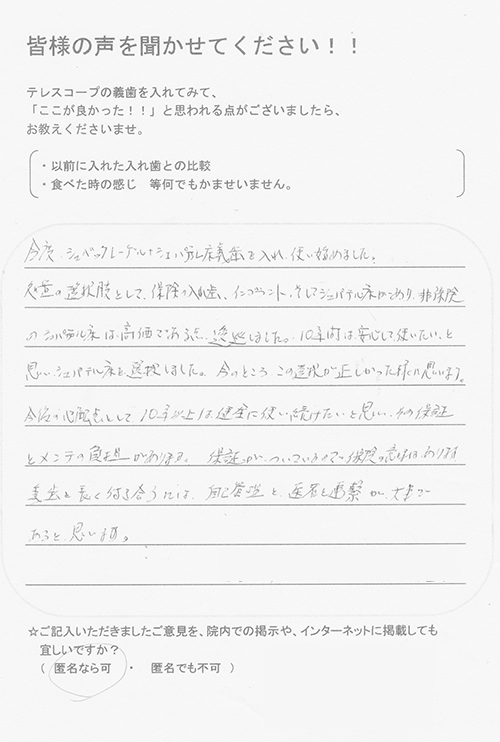 皆様の声を聞かせてください！！
テレスコープの義歯を入れてみて、
「ここが良かった！！」と思われる点がございましたら、
お教えくださいませ。
・以前に入れた入れ歯との比較
・食べた時の感じ　等何でもかませいません。
今度、シュベックレーゲル+シュパテル床義歯を入れ、使い始めました。
処置の選択肢として、保険の入れ歯、インプラント、そしてシュパテル床があり、非保険
のシュパテル床は、高価である点、逡巡しました。10年間は安心して使いたい、と
思い、シュパテル床を選択しました。今のところ、この選択が正しかった様に思います。
今後の心配点として、10年以上は健全に使い続けたいと思い、その保証
とメンテの負担があります。保証が、ついているので保険の意味はあります
義歯と長く付き合うには、自己管理と、医者と連繋が、大事で
あると、思います。
☆ご記入いただきましたご意見を、院内での掲示や、インターネットに掲載しても
宜しいですか？
（ 匿名なら可　・　匿名でも不可 ）